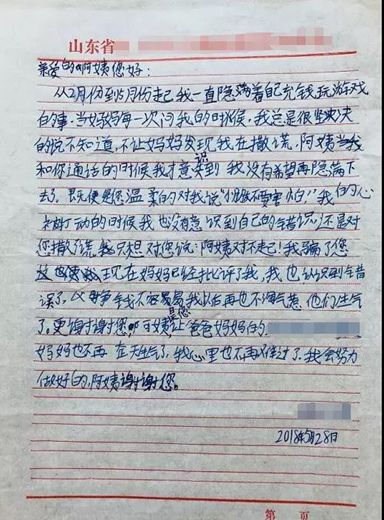 山东省
亲爱的阿姨您好：
从2月份到5月份起我一直隐瞒着自己充钱玩游戏
的事。当妈妈每一次问我的时候，我总是很坚决
的说不知道，不让妈妈发现我在撒谎，阿姨当我
和你通话的时候我才意识到我没有希望再隐瞒下
去了，既便是您温柔的对我说“你别害怕”我的心
被打动的时候我也没意识到自己的错误还是对
您撒了谎 我只想对您说：阿姨对不起！我骗了您
现在妈妈已经批评了我，我也认识到错
误了。父母挣钱不容易我以后再也不淘气惹他们生气
了。更得谢谢您阿姨是您让爸爸妈妈的
妈妈也不再在生气了，我心里也不再难过了。我会努力
做好的阿姨谢谢您。
2018年5月28日
第 页